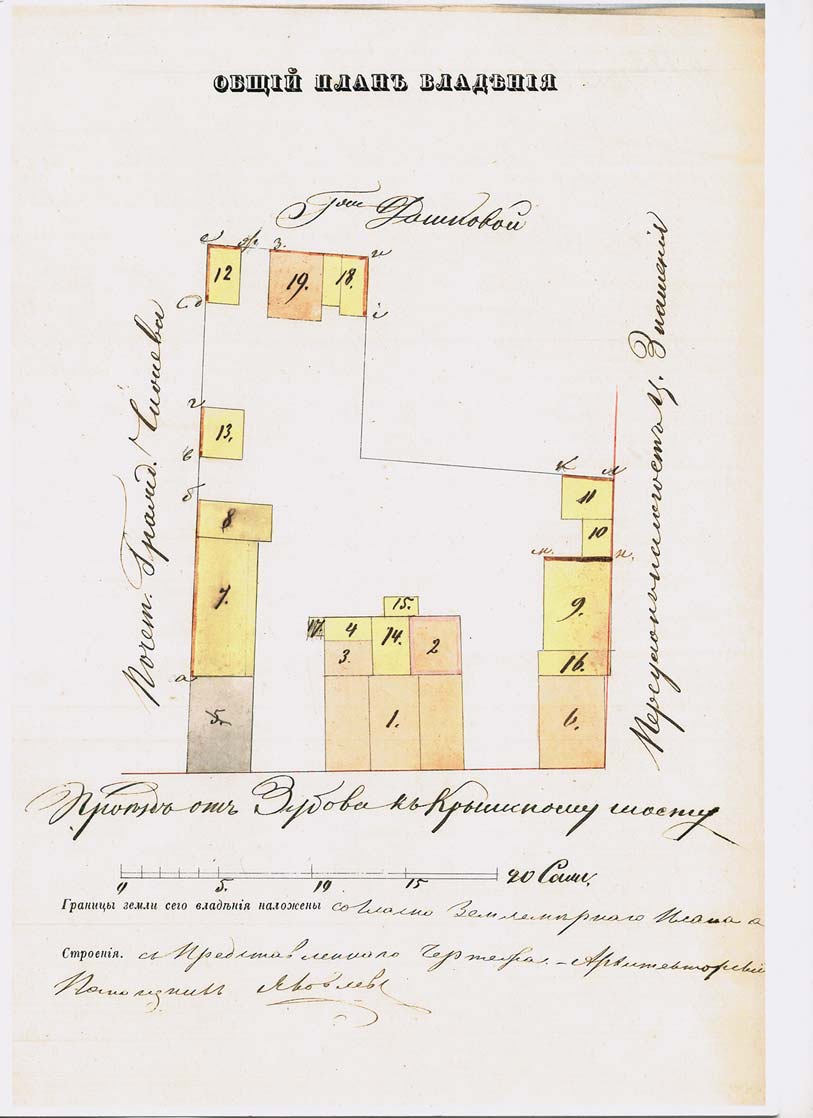 ОБЩІЙ ПЛАНЪ ВЛАДѢНІЯ
Дашковой
е ж з. и
12 19. 18.
д і
г
13.
в
Почет. Гражд.
б
8
7.
а
5.
к л
11
10
м. н.
9.
16.
6.
15.
17. 4 14. 2
3.
1.
ц. Знаменія
Проѣздъ отъ Зубова къ Крымскому мосту
0 5. 10 15 20 Саж.
Границы земли сего владѣнія наложены согласно Землемѣрнаго Плана а
Строенія. съ Представленнаго Чертежа. – Архитекторскій
Помощникъ Яковлевъ